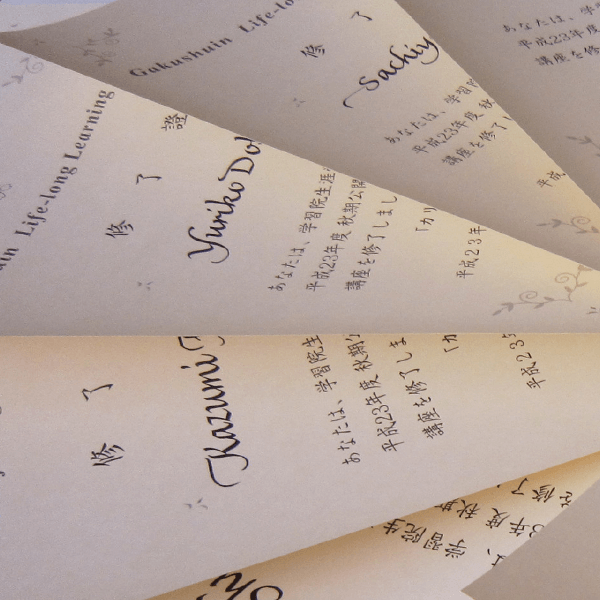 Gakushuin Life-lo
修 了
Sachiy
あなたは、学習院
平成23年度 秋
講座を修了し
平成
あなたは、学
平成23年度
講座を修
Life-long Learning
修 了 證
Yuriko Do
あなたは、学習院生涯
平成23年度 秋期公開
講座を修了しまし
「カリ
平成23年
修 了
Kazumi
あなたは、学習院生
平成23年度 秋期公
講座を修了しま
「カ
平成23
学習院生
年度 秋期
修了